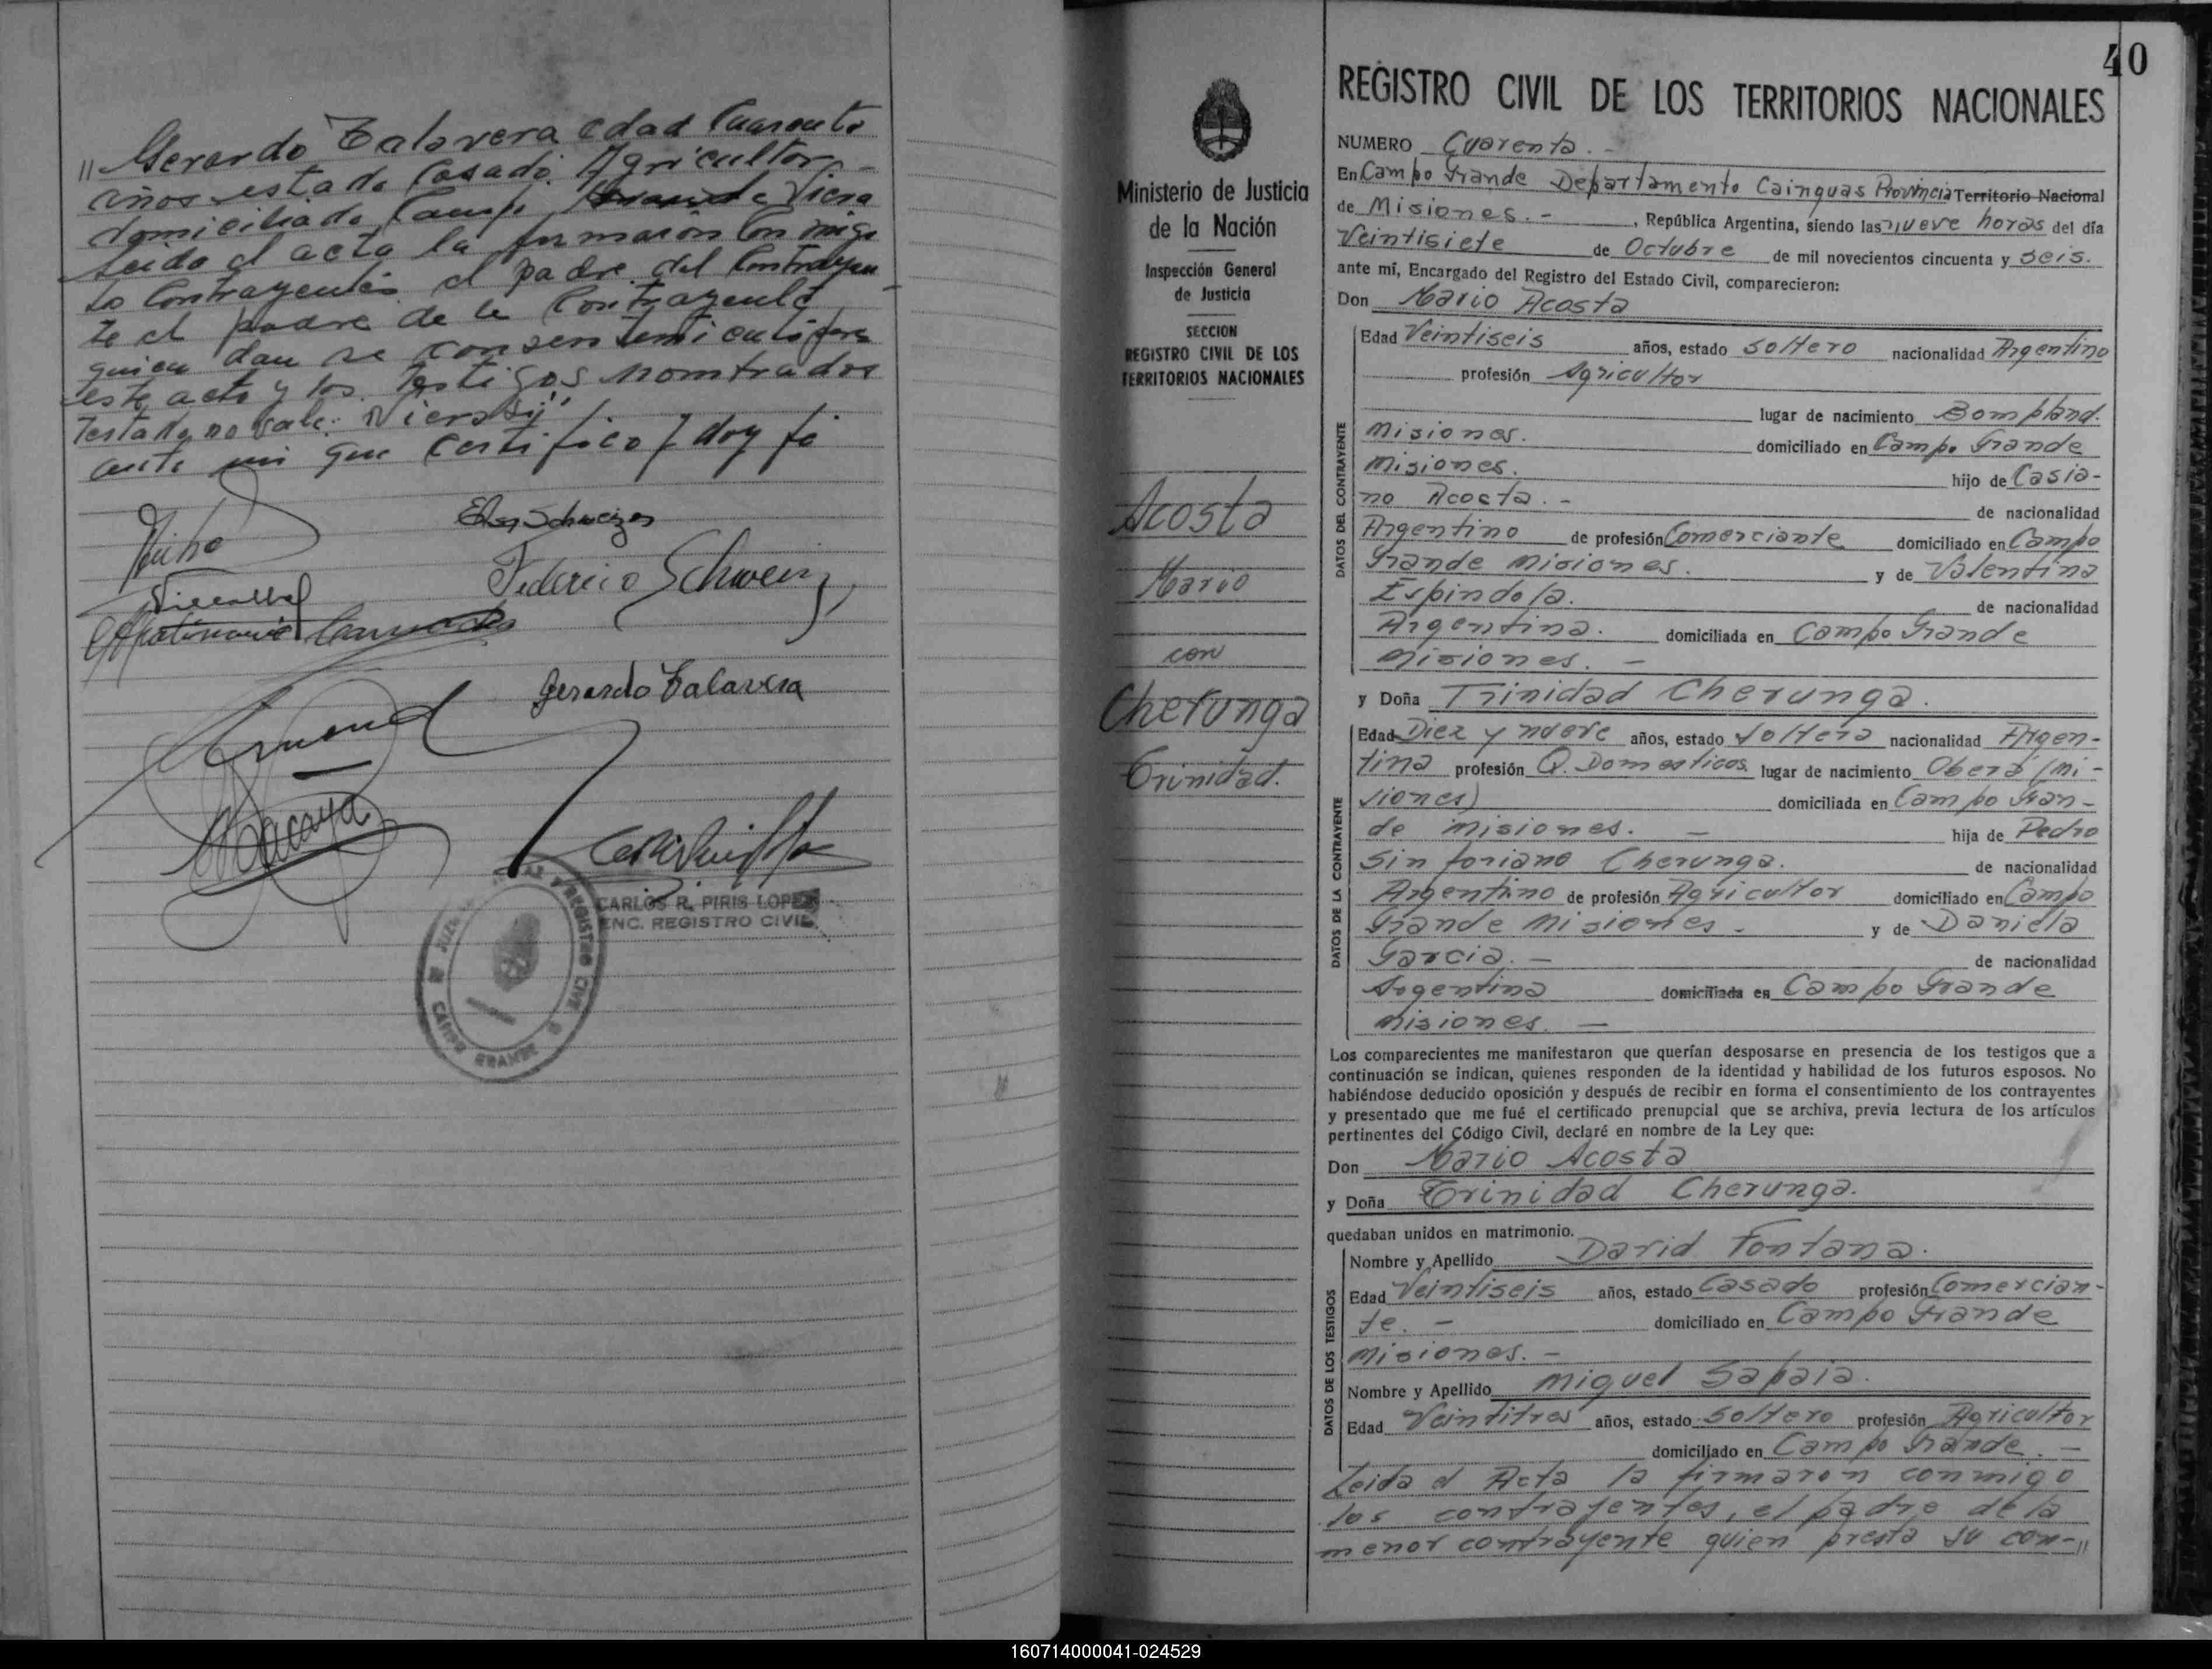 " Gerardo Talavera edad Cuarenta
años estado Casado Agricultor
domiciliado Campo Viera
Leido el acta la firmaron Con migo
Lo Contrayentes el padre del Contrayen
te el padre de la Contrayente
quien dan se consentimiento para
este acto y los testigos nombrados
Testado no vale: Viera Si"
ante mi que Certifico y doy fe
Elsa Schweizer
Federico Schweizer
Gerardo Talavera
Macaya
CARLOS R. PIRIS LOPEZ
ENC. REGISTRO CIVIL
REGISTRO CIVIL
CAMPO GRANDE
Ministerio de Justicia
de la Nación
Inspección General
de Justicia
SECCION
REGISTRO CIVIL DE LOS
TERRITORIOS NACIONALES
Acosta
Mario
con
Cherunga
Trinidad.
40
REGISTRO CIVIL DE LOS TERRITORIOS NACIONALES
NUMERO Cuarenta. -
En Campo Grande Departamento Cainguas Provincia Territorio Nacional
de Misiones. - , República Argentina, siendo las nueve horas del día
Veintisiete de Octubre de mil novecientos cincuenta y seis.
ante mí, Encargado del Registro del Estado Civil, comparecieron:
Don Mario Acosta
DATOS DEL CONTRAYENTE
Edad Veintiseis años, estado soltero nacionalidad Argentino
profesión Agricultor
lugar de nacimiento Bompland.
Misiones. domiciliado en Campo Grande
Misiones. hijo de Casia-
no Acosta. - de nacionalidad
Argentino de profesión Comerciante domiciliado en Campo
Grande Misiones. y de Valentina
Espindola. de nacionalidad
Argentina. domiciliada en Campo Grande
Misiones. -
y Doña Trinidad Cherunga.
DATOS DE LA CONTRAYENTE
Edad Diez y nueve años, estado Soltera nacionalidad Argen-
tina profesión Q. Domesticos lugar de nacimiento Oberá (Mi-
siones) domiciliada en Campo Gran-
de Misiones. - hija de Pedro
Sinforiano Cherunga. de nacionalidad
Argentino de profesión Agricultor domiciliado en Campo
Grande Misiones - y de Daniela
Garcia. - de nacionalidad
Argentina domiciliada en Campo Grande
Misiones. -
Los comparecientes me manifestaron que querían desposarse en presencia de los testigos que a
continuación se indican, quienes responden de la identidad y habilidad de los futuros esposos. No
habiéndose deducido oposición y después de recibir en forma el consentimiento de los contrayentes
y presentado que me fué el certificado prenupcial que se archiva, previa lectura de los artículos
pertinentes del Código Civil, declaré en nombre de la Ley que:
Don Mario Acosta
y Doña Trinidad Cherunga.
quedaban unidos en matrimonio.
DATOS DE LOS TESTIGOS
Nombre y Apellido David Fontana.
Edad Veintiseis años, estado Casado profesión Comercian-
te. - domiciliado en Campo Grande
Misiones. -
Nombre y Apellido Miguel Sapaia.
Edad Veintitres años, estado Soltero profesión Agricultor
domiciliado en Campo Grande. -
Leida el Acta la firmaron conmigo
los contrayentes, el padre de la
menor contrayente quien presta su con-"
160714000041-024529